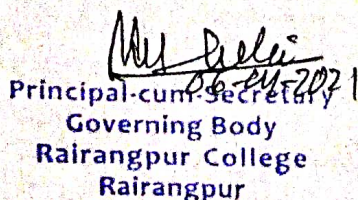 06-04-2021
Principal-cum-Secretary
Governing Body
Rairangpur College
Rairangpur